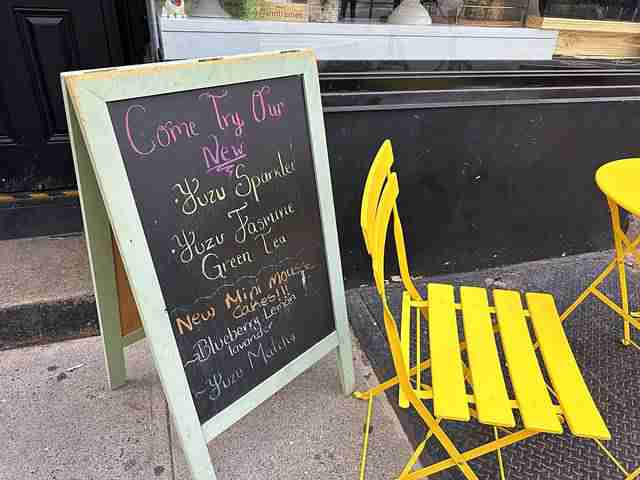 Come Try Our
New
·Yuzu Sparkler
·Yuzu Jasmine
Green Tea
New Mini Mousse
Cakes!!!
~Blueberry Lemon
lavander
~Yuzu Matcha